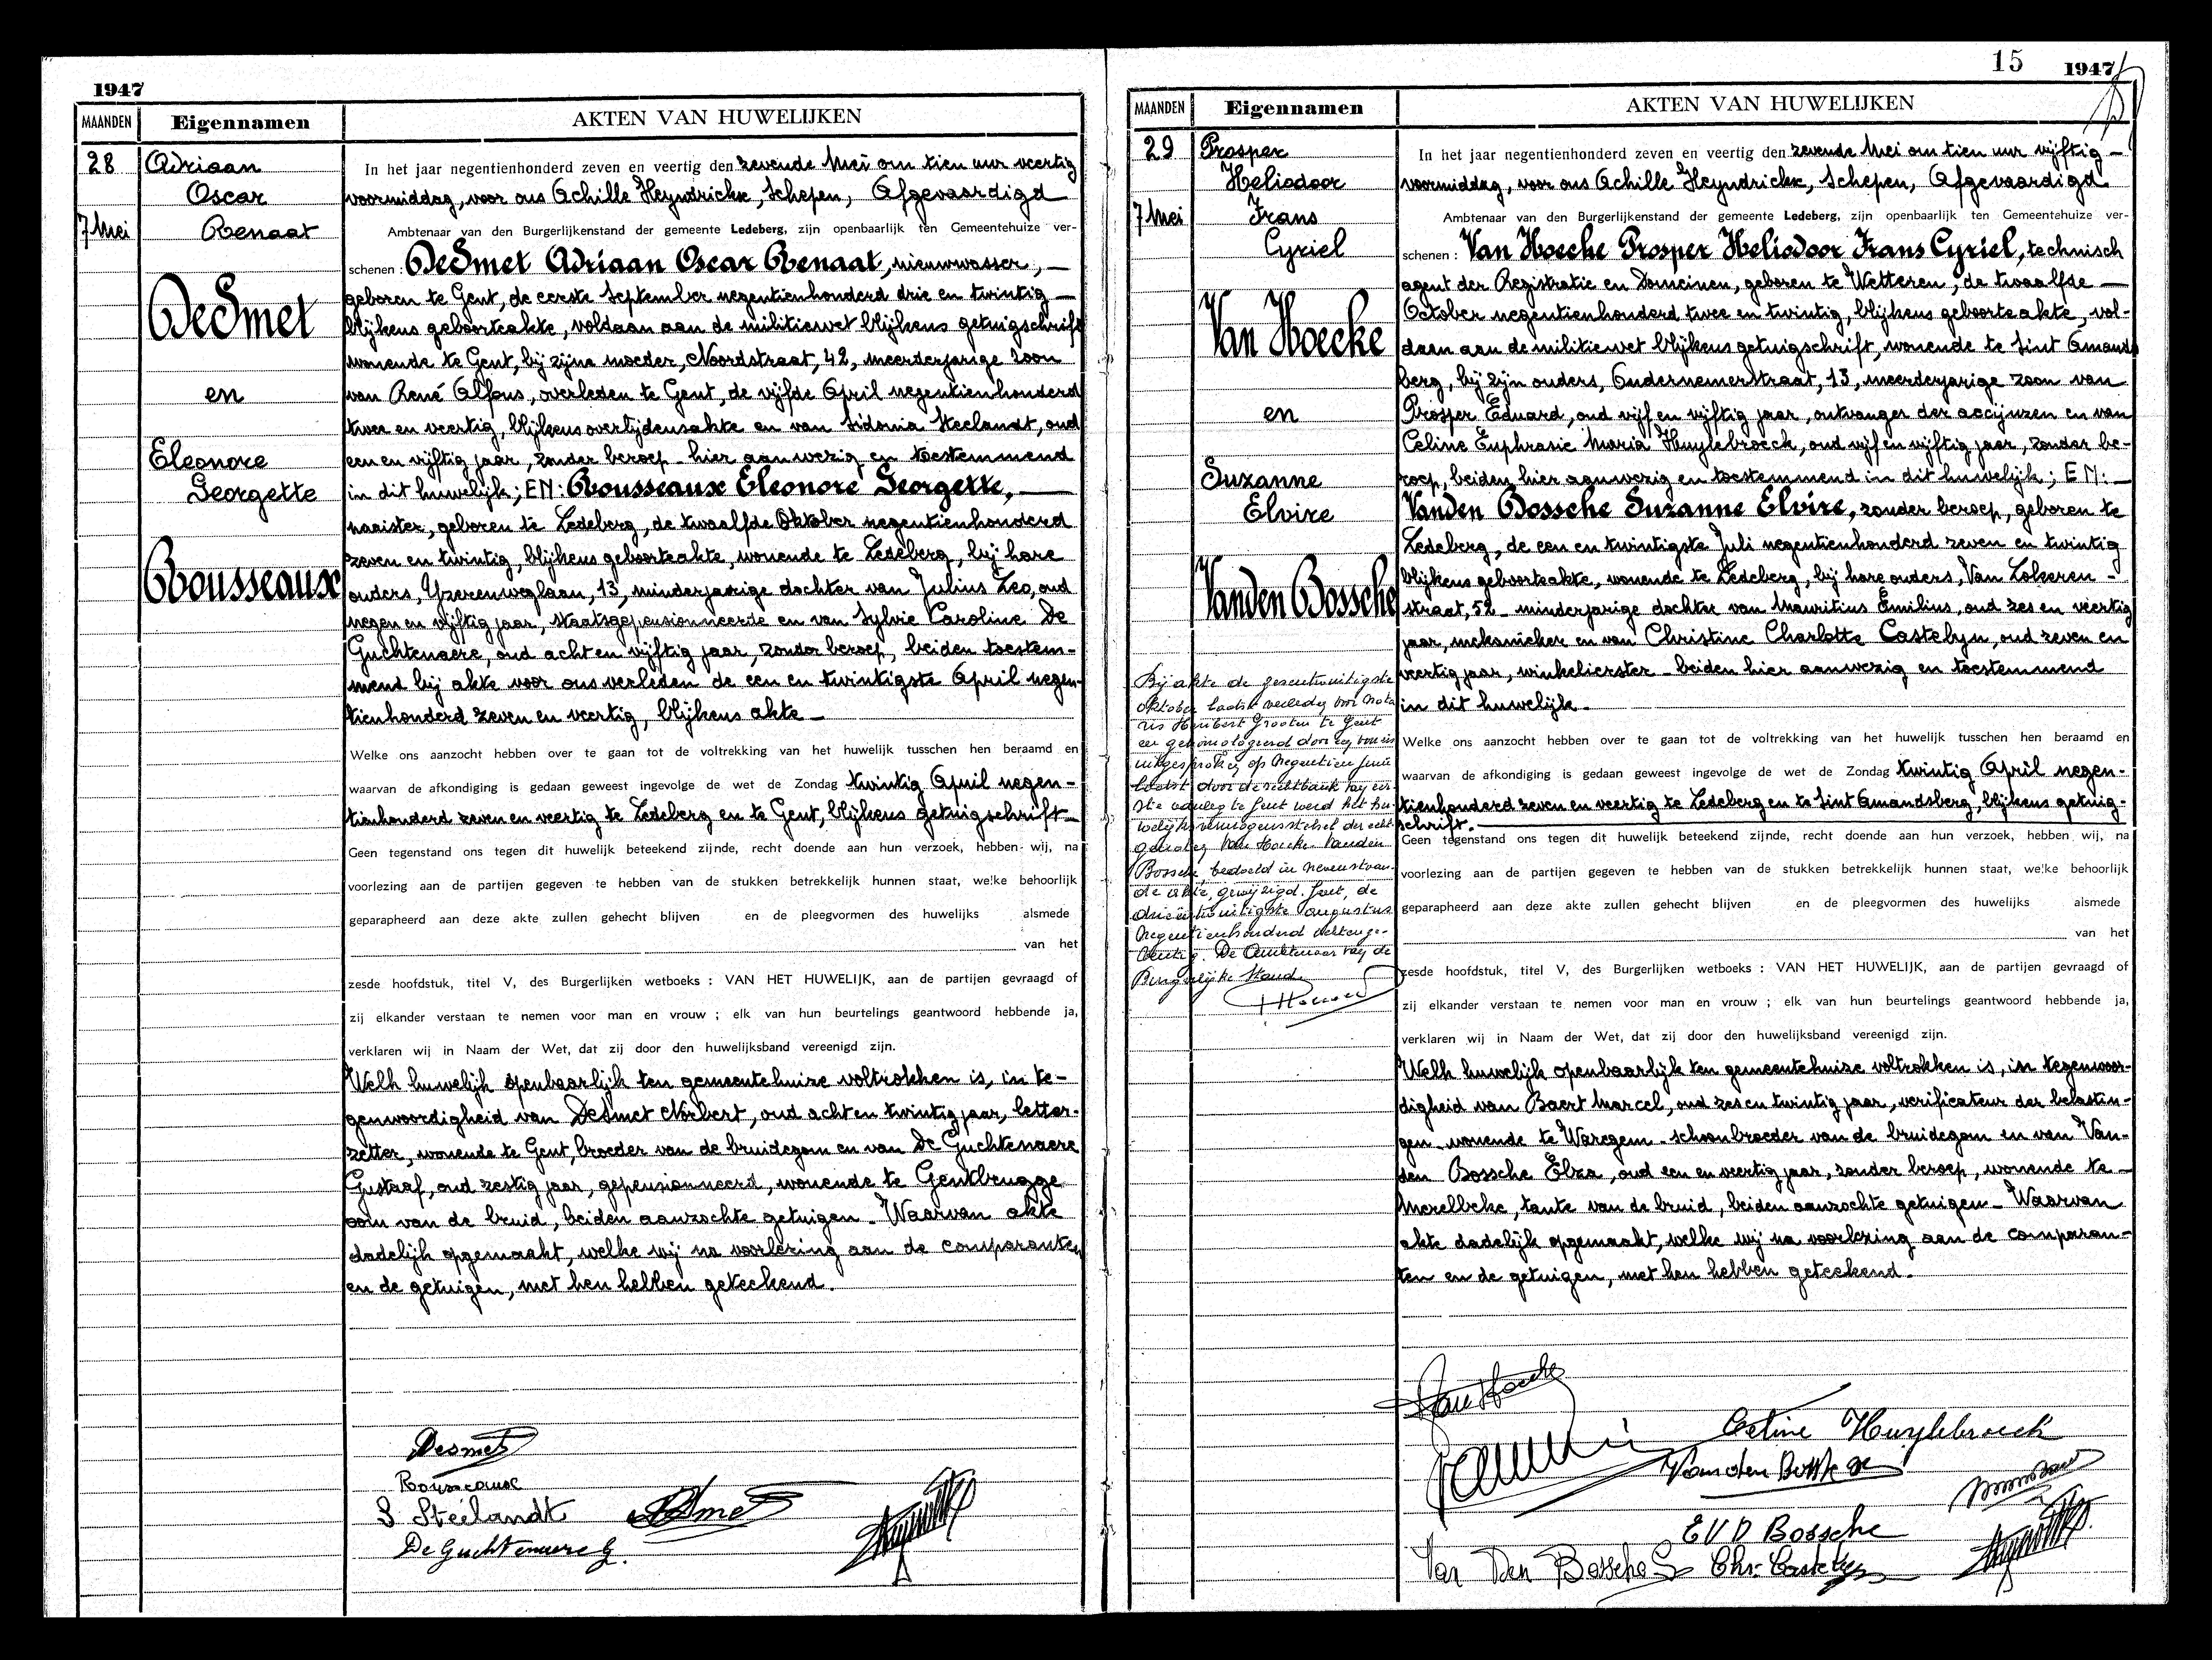 1947
MAANDEN Eigennamen AKTEN VAN HUWELIJKEN
28
7 Mei
Adriaan
Oscar
Renaat
DeSmet
en
Eleonore
Georgette
Rousseaux
In het jaar negentienhonderd zeven en veertig den zevende Mei om tien uur veertig
voormiddag, voor ons Achille Heyndrickx, Schepen, Afgevaardigd
Ambtenaar van den Burgerlijkenstand der gemeente Ledeberg, zijn openbaarlijk ten Gemeentehuize ver-
schenen : DeSmet Adriaan Oscar Renaat, nieuwwasser, —
geboren te Gent, de eerste September negentienhonderd drie en twintig —
blijkens geboorteakte, voldaan aan de militiewet blijkens getuigschrift
wonende te Gent, bij zijne moeder, Noordstraat, 42, meerderjarige zoon
van René Alfons, overleden te Gent, de vijfde April negentienhonderd
twee en veertig, blijkens overlijdensakte en van Sidonia Steelandt, oud
een en vijftig jaar, zonder beroep - hier aanwezig en toestemmend
in dit huwelijk; EN: Rousseaux Eleonore Georgette, —
naaister, geboren te Ledeberg, de twaalfde Oktober negentienhonderd
zeven en twintig, blijkens geboorteakte, wonende te Ledeberg, bij hare
ouders, Yzerenweglaan, 13, minderjarige dochter van Julius Leo, oud
negen en vijftig jaar, staatsgepensionneerde en van Sylvie Caroline De
Guchtenaere, oud acht en vijftig jaar, zonder beroep, beiden toestem-
mend bij akte voor ons verleden de een en twintigste April negen-
tienhonderd zeven en veertig, blijkens akte —
Welke ons aanzocht hebben over te gaan tot de voltrekking van het huwelijk tusschen hen beraamd en
waarvan de afkondiging is gedaan geweest ingevolge de wet de Zondag twintig April negen-
tienhonderd zeven en veertig te Ledeberg en te Gent, blijkens getuigschrift —
Geen tegenstand ons tegen dit huwelijk beteekend zijnde, recht doende aan hun verzoek, hebben wij, na
voorlezing aan de partijen gegeven te hebben van de stukken betrekkelijk hunnen staat, welke behoorlijk
geparapheerd aan deze akte zullen gehecht blijven en de pleegvormen des huwelijks alsmede
van het
zesde hoofdstuk, titel V, des Burgerlijken wetboeks : VAN HET HUWELIJK, aan de partijen gevraagd of
zij elkander verstaan te nemen voor man en vrouw ; elk van hun beurtelings geantwoord hebbende ja,
verklaren wij in Naam der Wet, dat zij door den huwelijksband vereenigd zijn.
Welk huwelijk openbaarlijk ten gemeentehuize voltrokken is, in te-
genwoordigheid van DeSmet Norbert, oud acht en twintig jaar, letter-
zetter, wonende te Gent, broeder van de bruidegom en van De Guchtenaere
Gustaaf, oud zestig jaar, gepensionneerd, wonende te Gentbrugge
oom van de bruid, beiden aanzochte getuigen - Waarvan akte
dadelijk opgemaakt, welke wij na voorlezing aan de comparanten
en de getuigen, met hen hebben geteekend.
Desmet
Rousseaux
S Steelandt
De Guchtenaere G.
15 1947
MAANDEN Eigennamen AKTEN VAN HUWELIJKEN
29
7 Mei
Prosper
Heliodoor
Frans
Cyriel
Van Hoecke
en
Suzanne
Elvire
Vanden Bossche
Bij akte de zesentwintigste
oktober laatst verleden voor nota
ris Heribert Grooten te Gent
en gehomologeerd door een vonnis
uitgesproken op negentien juni
laatst door de rechtbank van eer
ste aanleg te Gent werd het hu-
welijksvermogensstelsel der echt-
genoten Van Hoecke-Vanden
Bossche, bedoeld in nevenstaan-
de akte, gewijzigd. Gent, de
drieëntwintigste augustus
negentienhonderd achtenze-
ventig. De Ambtenaar van de
Burgerlijke Stand.
In het jaar negentienhonderd zeven en veertig den zevende Mei om tien uur vijftig —
voormiddag, voor ons Achille Heyndrickx, Schepen, Afgevaardigd
Ambtenaar van den Burgerlijkenstand der gemeente Ledeberg, zijn openbaarlijk ten Gemeentehuize ver-
schenen : Van Hoecke Prosper Heliodoor Frans Cyriel, technisch
agent der Registratie en Domeinen, geboren te Wetteren, de twaalfde —
October negentienhonderd twee en twintig, blijkens geboorteakte, vol-
daan aan de militiewet blijkens getuigschrift, wonende te Sint Amands
berg, bij zijn ouders, Ondernemerstraat, 13, meerderjarige zoon van
Prosper Eduard, oud vijf en vijftig jaar, ontvanger der accijnzen en van
Celine Euphrasie Maria Huylebroeck, oud vijf en vijftig jaar, zonder be-
roep, beiden hier aanwezig en toestemmend in dit huwelijk; EN: —
Vanden Bossche Suzanne Elvire, zonder beroep, geboren te
Ledeberg, de een en twintigste Juli negentienhonderd zeven en twintig
blijkens geboorteakte, wonende te Ledeberg, bij hare ouders, Van Lokeren -
straat, 52 - minderjarige dochter van Mauritius Emilius, oud zes en veertig
jaar, mekanieker en van Christine Charlotte Castelyn, oud zeven en
veertig jaar, winkelierster - beiden hier aanwezig en toestemmend
in dit huwelijk -
Welke ons aanzocht hebben over te gaan tot de voltrekking van het huwelijk tusschen hen beraamd en
waarvan de afkondiging is gedaan geweest ingevolge de wet de Zondag twintig April negen-
tienhonderd zeven en veertig te Ledeberg en te Sint Amandsberg, blijkens getuig-
schrift.
Geen tegenstand ons tegen dit huwelijk beteekend zijnde, recht doende aan hun verzoek, hebben wij, na
voorlezing aan de partijen gegeven te hebben van de stukken betrekkelijk hunnen staat, welke behoorlijk
geparapheerd aan deze akte zullen gehecht blijven en de pleegvormen des huwelijks alsmede
van het
zesde hoofdstuk, titel V, des Burgerlijken wetboeks : VAN HET HUWELIJK, aan de partijen gevraagd of
zij elkander verstaan te nemen voor man en vrouw ; elk van hun beurtelings geantwoord hebbende ja,
verklaren wij in Naam der Wet, dat zij door den huwelijksband vereenigd zijn.
Welk huwelijk openbaarlijk ten gemeentehuize voltrokken is, in tegenwoor-
digheid van Baert Marcel, oud zes en twintig jaar, verificateur der belastin-
gen - wonende te Waregem - schoonbroeder van de bruidegom en van Van-
den Bossche Elza, oud een en veertig jaar, zonder beroep, wonende te —
Merelbeke, tante van de bruid, beiden aanzochte getuigen - Waarvan
akte dadelijk opgemaakt, welke wij na voorlezing aan de comparan-
ten en de getuigen, met hen hebben geteekend.
Van Hoecke
Celine Huylebroeck
Van den Bossche
E V D Bossche
Van Den Bossche S Chr. Castelyn